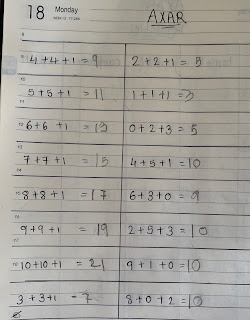 18 Monday
AXAR
4+4+1=9
2+2+1=5
5+5+1=11
1+1+1=3
6+6+1=13
0+2+3=5
7+7+1=15
4+5+1=10
8+8+1=17
6+3+0=9
9+9+1=19
2+5+3=10
10+10+1=21
9+1+0=10
3+3+1=7
8+0+2=10